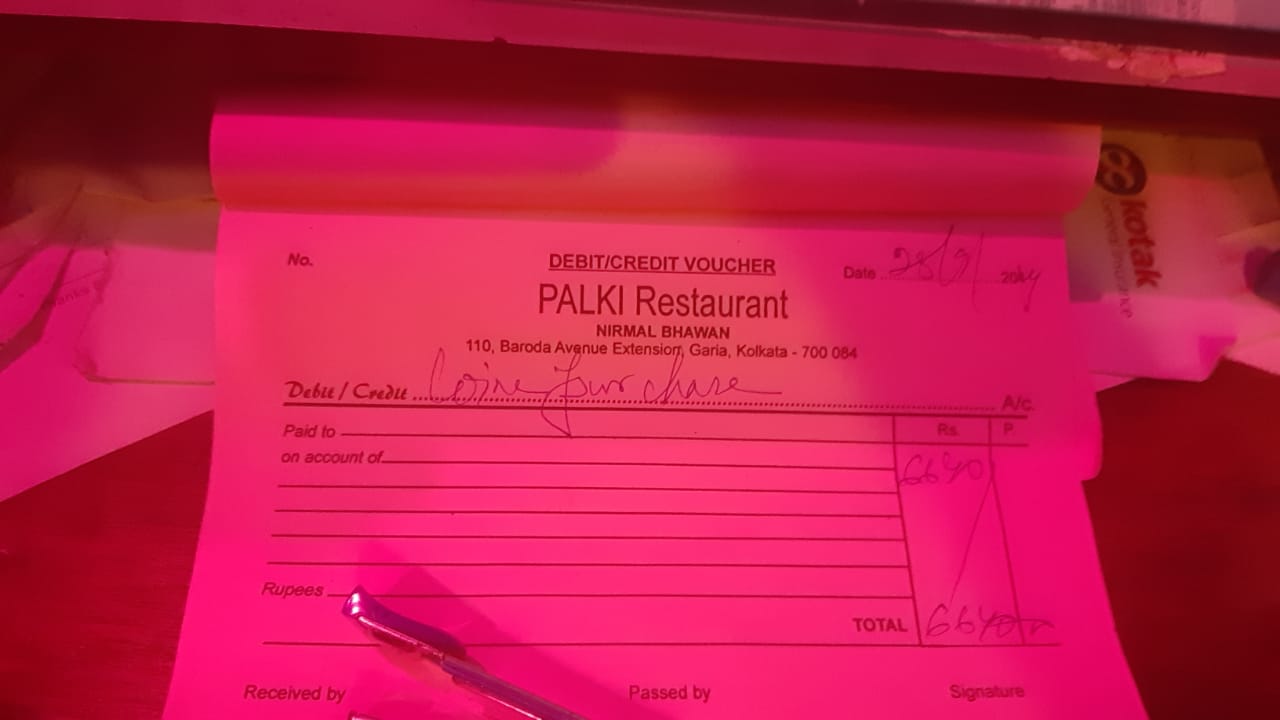 No.
DEBIT/CREDIT VOUCHER
Date 28/9/ 2024
PALKI Restaurant
NIRMAL BHAWAN
110, Baroda Avenue Extension, Garia, Kolkata - 700 084
Debit / Credit purchase A/c.
Paid to Rs. P.
on account of 6640
Rupees
TOTAL 6640
Received by Passed by Signature
kotak